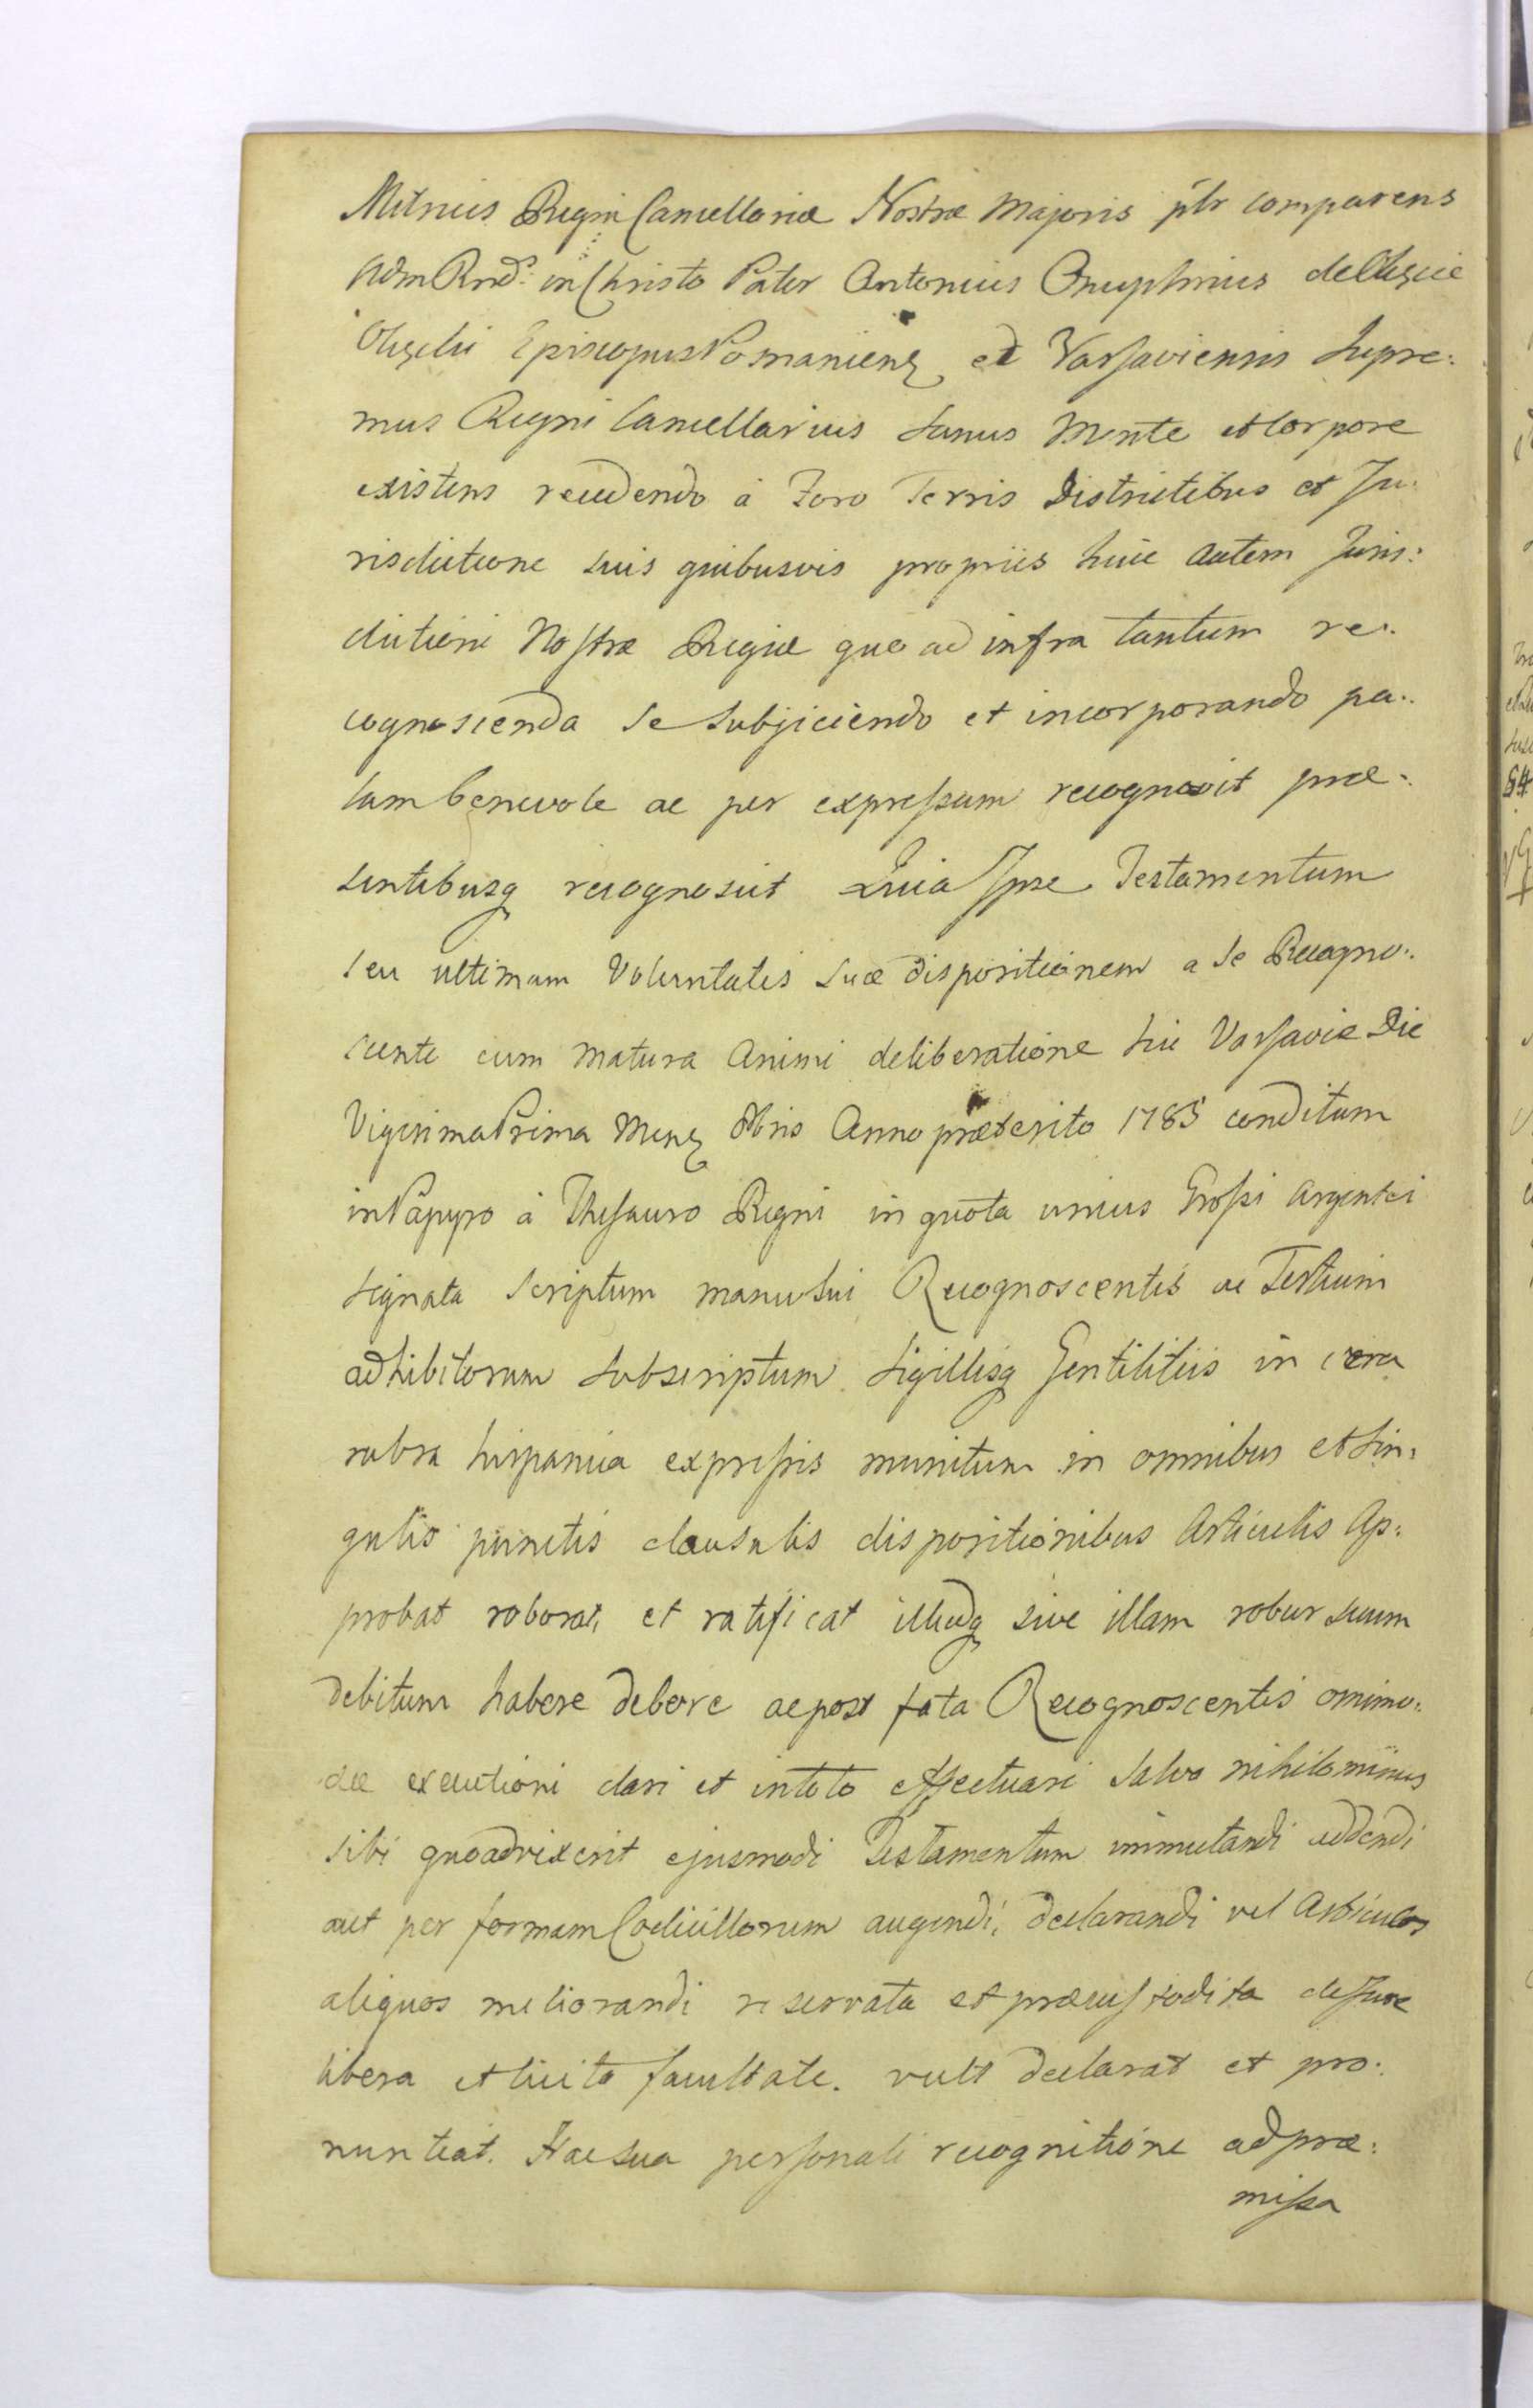 Metrices Regni Cancellariæ Nostræ Majoris plr comparens
Adm Rnd. in Christo Pater Antonius Onuphrius de Okęcie
Okęcki Episcopus Posnaniens et Varsaviensis Supre:
mus Regni Cancellarius Sanus Mente et Corpore
existens recedendo à Foro Terris Districtibus et Ju:
risdictione suis quibusvis propriis huic autem Juris:
dictioni Nostræ Regiæ quo ad infra tantum re:
cognoscenda se subjiciendo et incorporando pa:
lam benevole ac per expressum recognovit præ:
sentibusq recognoscit Quia Ipse Testamentum
seu ultimam Voluntatis suæ dispositionem a se Recogno:
scente cum matura Animi deliberatione hic Varsaviæ Die
Vigesima Prima Mens Xbris Anno præterito 1785 conditum
in Papyro à Thesauro Regni in quota unius Grossi Argentei
signata Scriptum manu sui Recognoscentis ac Testium
adhibitorum subscriptum Sigillisq Gentilitiis in cera
rubra hispanica expressis munitum in omnibus et sin:
gulis punctis clausulis dispositionibus Articulis Ap:
probat roborat, et ratificat illudq sive illam robur suum
debitum habere debere ac post fata Recognoscentis omimo:
dæ executioni dari et in toto effectuari Salva nihilominus
sibi quoadvixerit ejusmodi Testamentum immutandi addendi
aut per formam Codicillorum augendi, declarandi vel Articulos
aliquos meliorandi reservata et præcustodita de Jure
libera et licita facultate. vult declarat et pro:
nuntiat. Hac sua personali recognitione ad præ:
missa